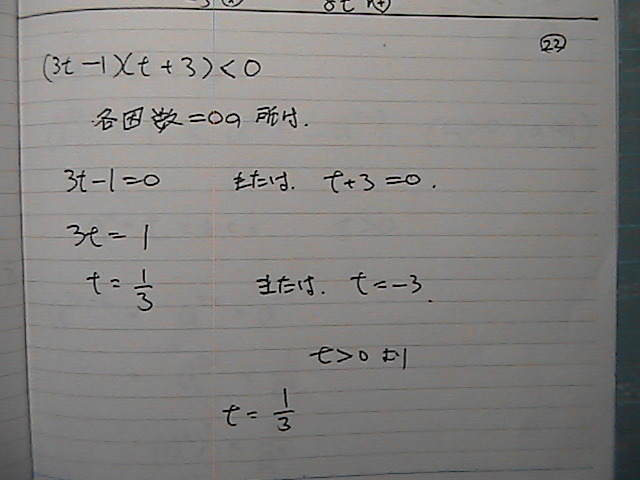 ㉒
(3t-1)(t+3)<0
各因数=0の所は.
3t-1=0 または. t+3=0.
3t=1
t=1/3 または. t=-3.
t>0より
t=1/3